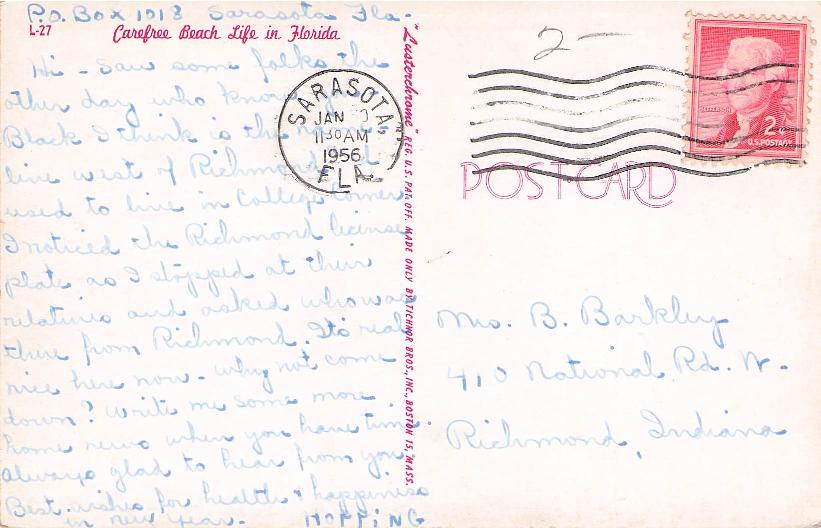 P.O. Box 1013 Sarasota Fla.
L-27
Carefree Beach Life in Florida
Hi - Saw some folks the
other day who know
Black I think is the
line west of Richmond
used to live in College Corner
I noticed the Richmond license
plate as I stopped at their
relatives and asked who was
there from Richmond. Its real
nice here now - why not come
down? Write me some more
home news when you have time
Always glad to hear from you
Best wishes for health & happiness
in new year. HOFFING
"Lusterchrome" REG. U.S. PAT. OFF. MADE ONLY BY TICHNOR BROS., INC., BOSTON 15, MASS.
SARASOTA,
JAN
11 30 AM
1956
FLA.
2 -
2¢
U.S. POSTAGE
POST CARD
Mrs. B. Barkley
410 National Rd. W.
Richmond, Indiana